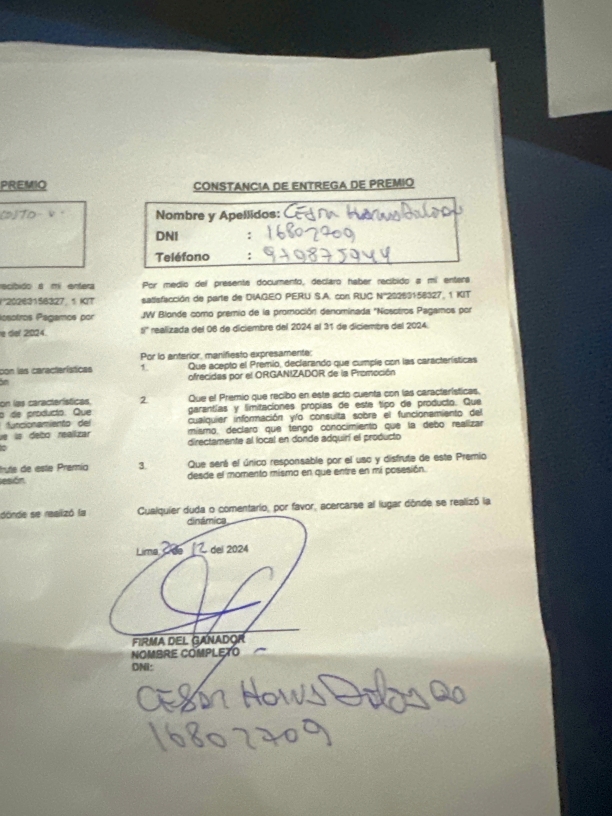 PREMIO
recibido a mi entera
N°20263158327, 1 KIT
Nosotros Pagamos por
e del 2024.
con las características
ón
on las características,
o de producto. Que
funcionamiento del
e la debo realizar
to
frute de este Premio
sesión.
dónde se realizó la
CONSTANCIA DE ENTREGA DE PREMIO
Nombre y Apellidos: CESAR
DNI : 16802709
Teléfono : 979875944
Por medio del presente documento, declaro haber recibido a mi entera
satisfacción de parte de DIAGEO PERU S.A. con RUC N°20263158327, 1 KIT
JW Blonde como premio de la promoción denominada "Nosotros Pagamos por
5" realizada del 06 de diciembre del 2024 al 31 de diciembre del 2024.
Por lo anterior, manifiesto expresamente:
1. Que acepto el Premio, declarando que cumple con las características
ofrecidas por el ORGANIZADOR de la Promoción
2. Que el Premio que recibo en este acto cuenta con las características,
garantías y limitaciones propias de este tipo de producto. Que
cualquier información y/o consulta sobre el funcionamiento del
mismo, declaro que tengo conocimiento que la debo realizar
directamente al local en donde adquirí el producto
3. Que será el único responsable por el uso y disfrute de este Premio
desde el momento mismo en que entre en mi posesión.
Cualquier duda o comentario, por favor, acercarse al lugar dónde se realizó la
dinámica.
Lima, de 12 del 2024
FIRMA DEL GANADOR
NOMBRE COMPLETO
DNI:
CESAR
16802709